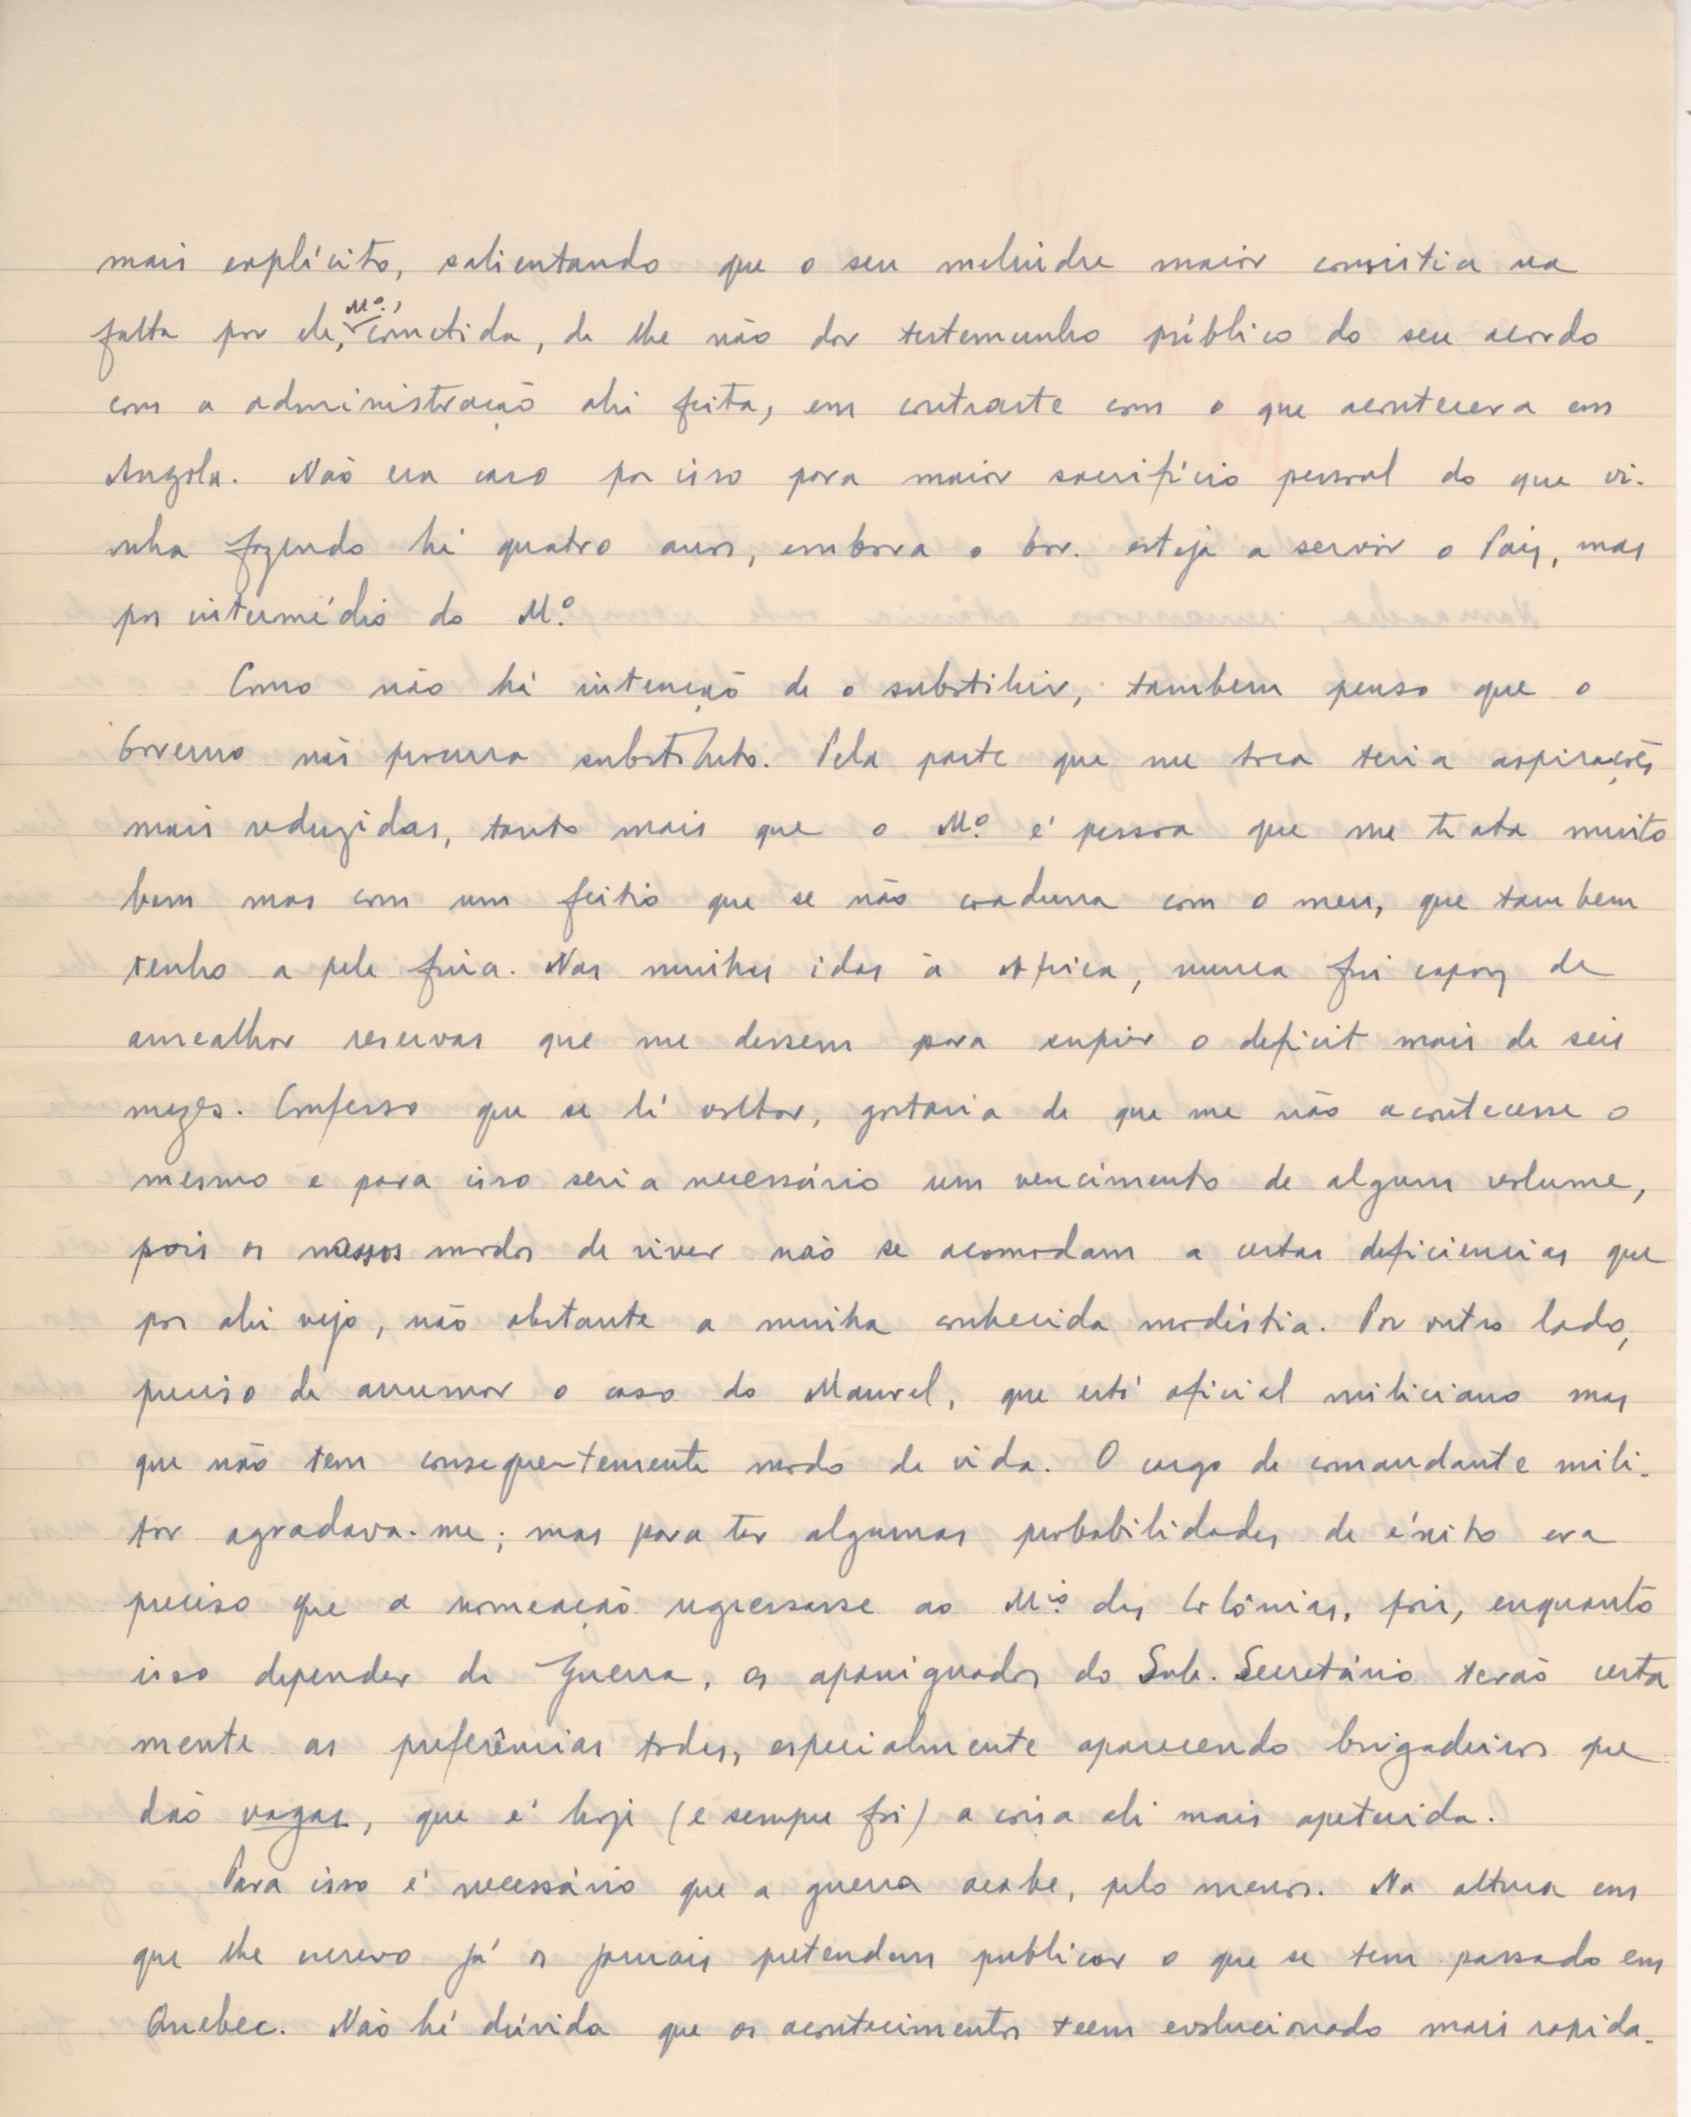 mais explícito, salientando que o seu melindre maior consistia na
falta por ele, Mº., cometida, de lhe não dar testemunho público do seu acordo
com a administração ahi feita, em contraste com o que acontecera em
Angola. Não era caso por isso para maior sacrifício pessoal do que vi-
nha fazendo há quatro anos, embora o Gov. esteja a servir o Paiz, mas
por intermédio do Mº.
Como não há intenção de o substituir, tambem penso que o
Governo não procura substituto. Pela parte que me toca teria aspirações
mais reduzidas, tanto mais que o Mº. é pessoa que me trata muito
bem mas com um feitio que se não coaduna com o meu, que tambem
tenho a pele fina. Nas minhas idas à Africa, nunca fui capaz de
amealhar reservas que me dessem para suprir o deficit mais de seis
mezes. Confesso que se lá voltar, gostaria de que me não acontecesse o
mesmo e para isso seria necessário um vencimento de algum volume,
pois os nossos modos de viver não se acomodam a certas deficiencias que
por ahi vejo, não obstante a minha conhecida modéstia. Por outro lado,
preciso de arrumar o caso do Manuel, que está oficial miliciano mas
que não tem consequentemente modo de vida. O cargo de comandante mili-
tar agradava-me; mas para ter algumas probabilidades de éxito era
preciso que a nomeação regressasse ao Mio. das Colónias, pois, enquanto
isso depender da Guerra, os apaniguados do Sub-Secretário terão certa
mente as preferências todas, especialmente aparecendo brigadeiros que
dão vagas, que é hoje (e sempre foi) a coisa ali mais apetecida.
Para isso é necessário que a guerra acabe, pelo menos. Na altura em
que lhe escrevo já os jornais pretendem publicar o que se tem passado em
Quebec. Não há dúvida que os acontecimentos teem evolucionado mais rapida-